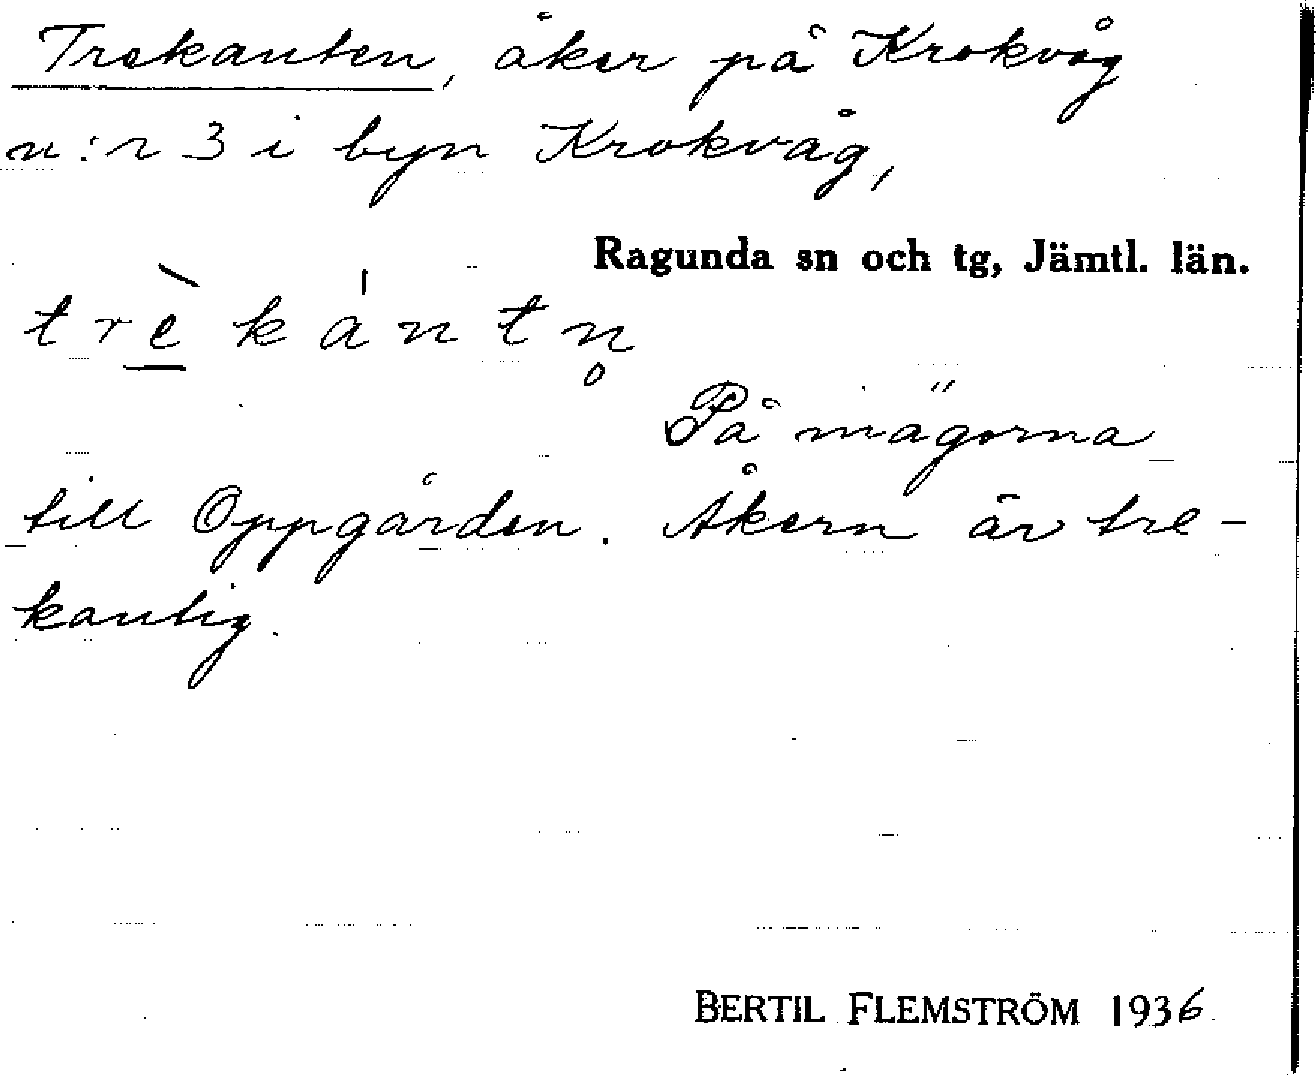 Trekanten, åker på Krokvåg
n:r 3 i byn Krokvåg,
Ragunda sn och tg, Jämtl. län.
trè̱kántn̥
På inägorna
till Oppgården. Åkern är tre-
kantig.
BERTIL FLEMSTRÖM 1936